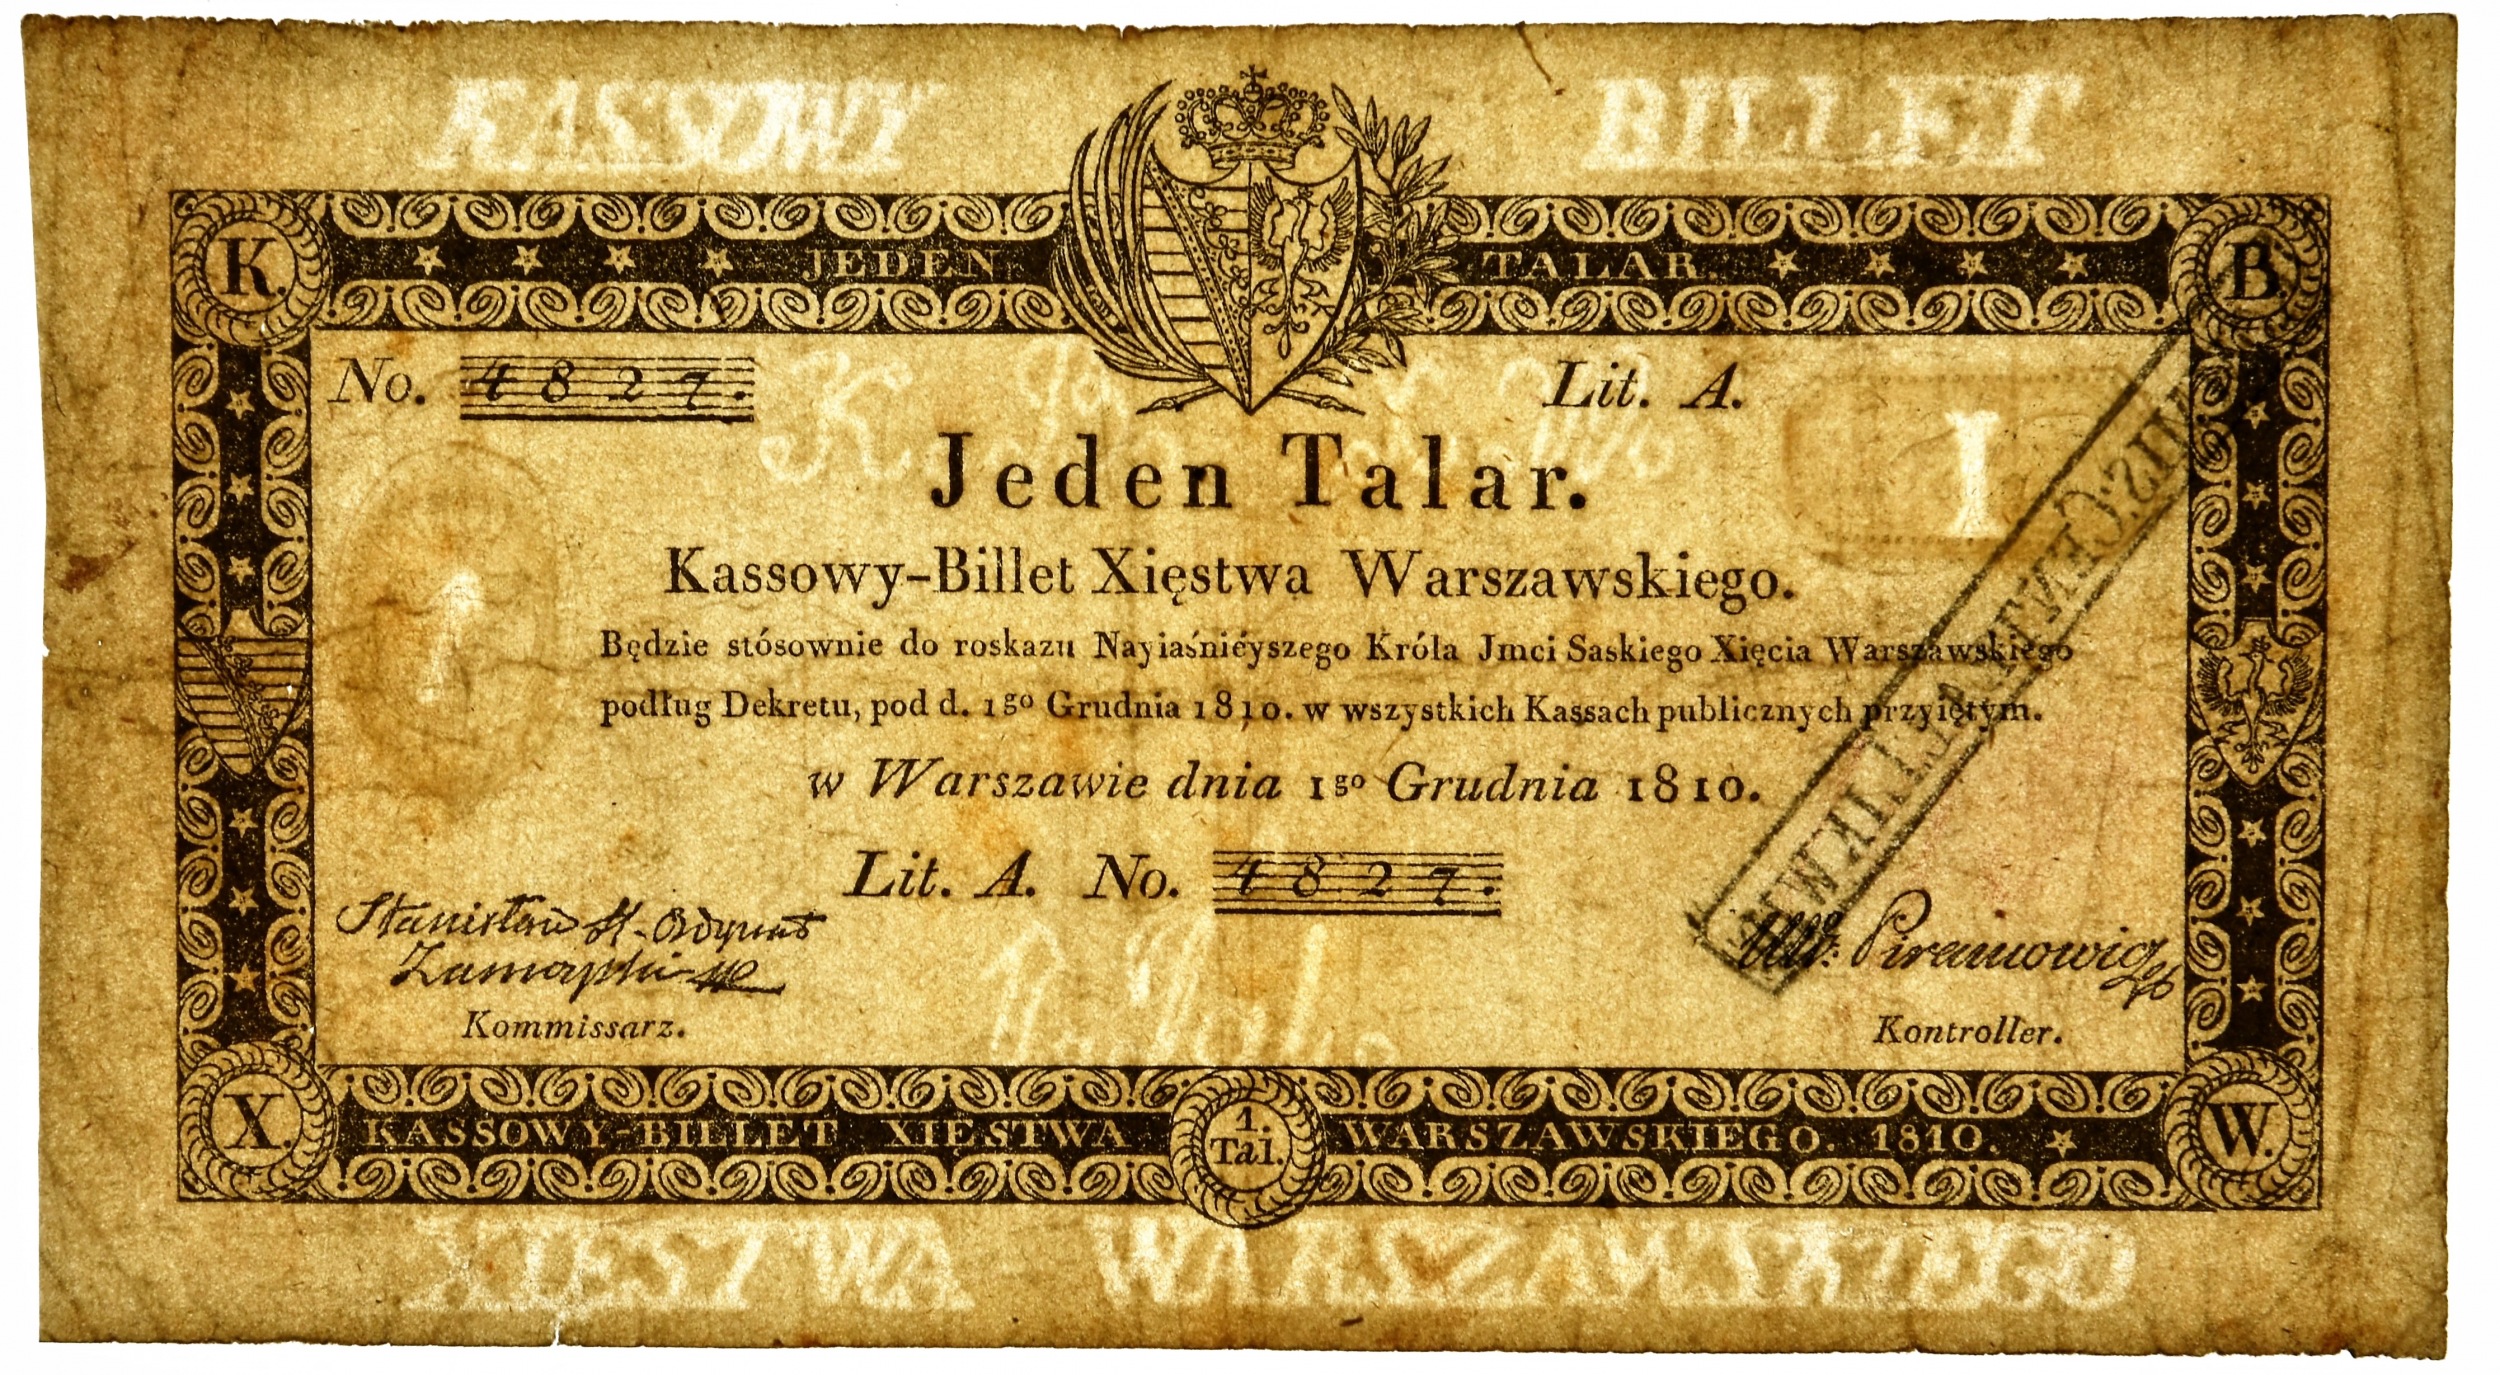 KASSOWY BILLET
K. B.
JEDEN TALAR.
No. 4827. Lit. A.
1
I
Jeden Talar.
Kassowy-Billet Xięstwa Warszawskiego.
Będzie stósownie do roskazu Nayiaśniéyszego Króla Jmci Saskiego Xięcia Warszawskiego
podług Dekretu, pod d. 1go Grudnia 1810. w wszystkich Kassach publicznych przyiętym.
w Warszawie dnia 1go Grudnia 1810.
Lit. A. No. 4827.
Stanisław Zamoyski
Kommissarz.
Kontroller.
X. W.
KASSOWY-BILLET XIĘSTWA WARSZAWSKIEGO. 1810.
1.
Tal.
XIĘSTWA WARSZAWSKIEGO